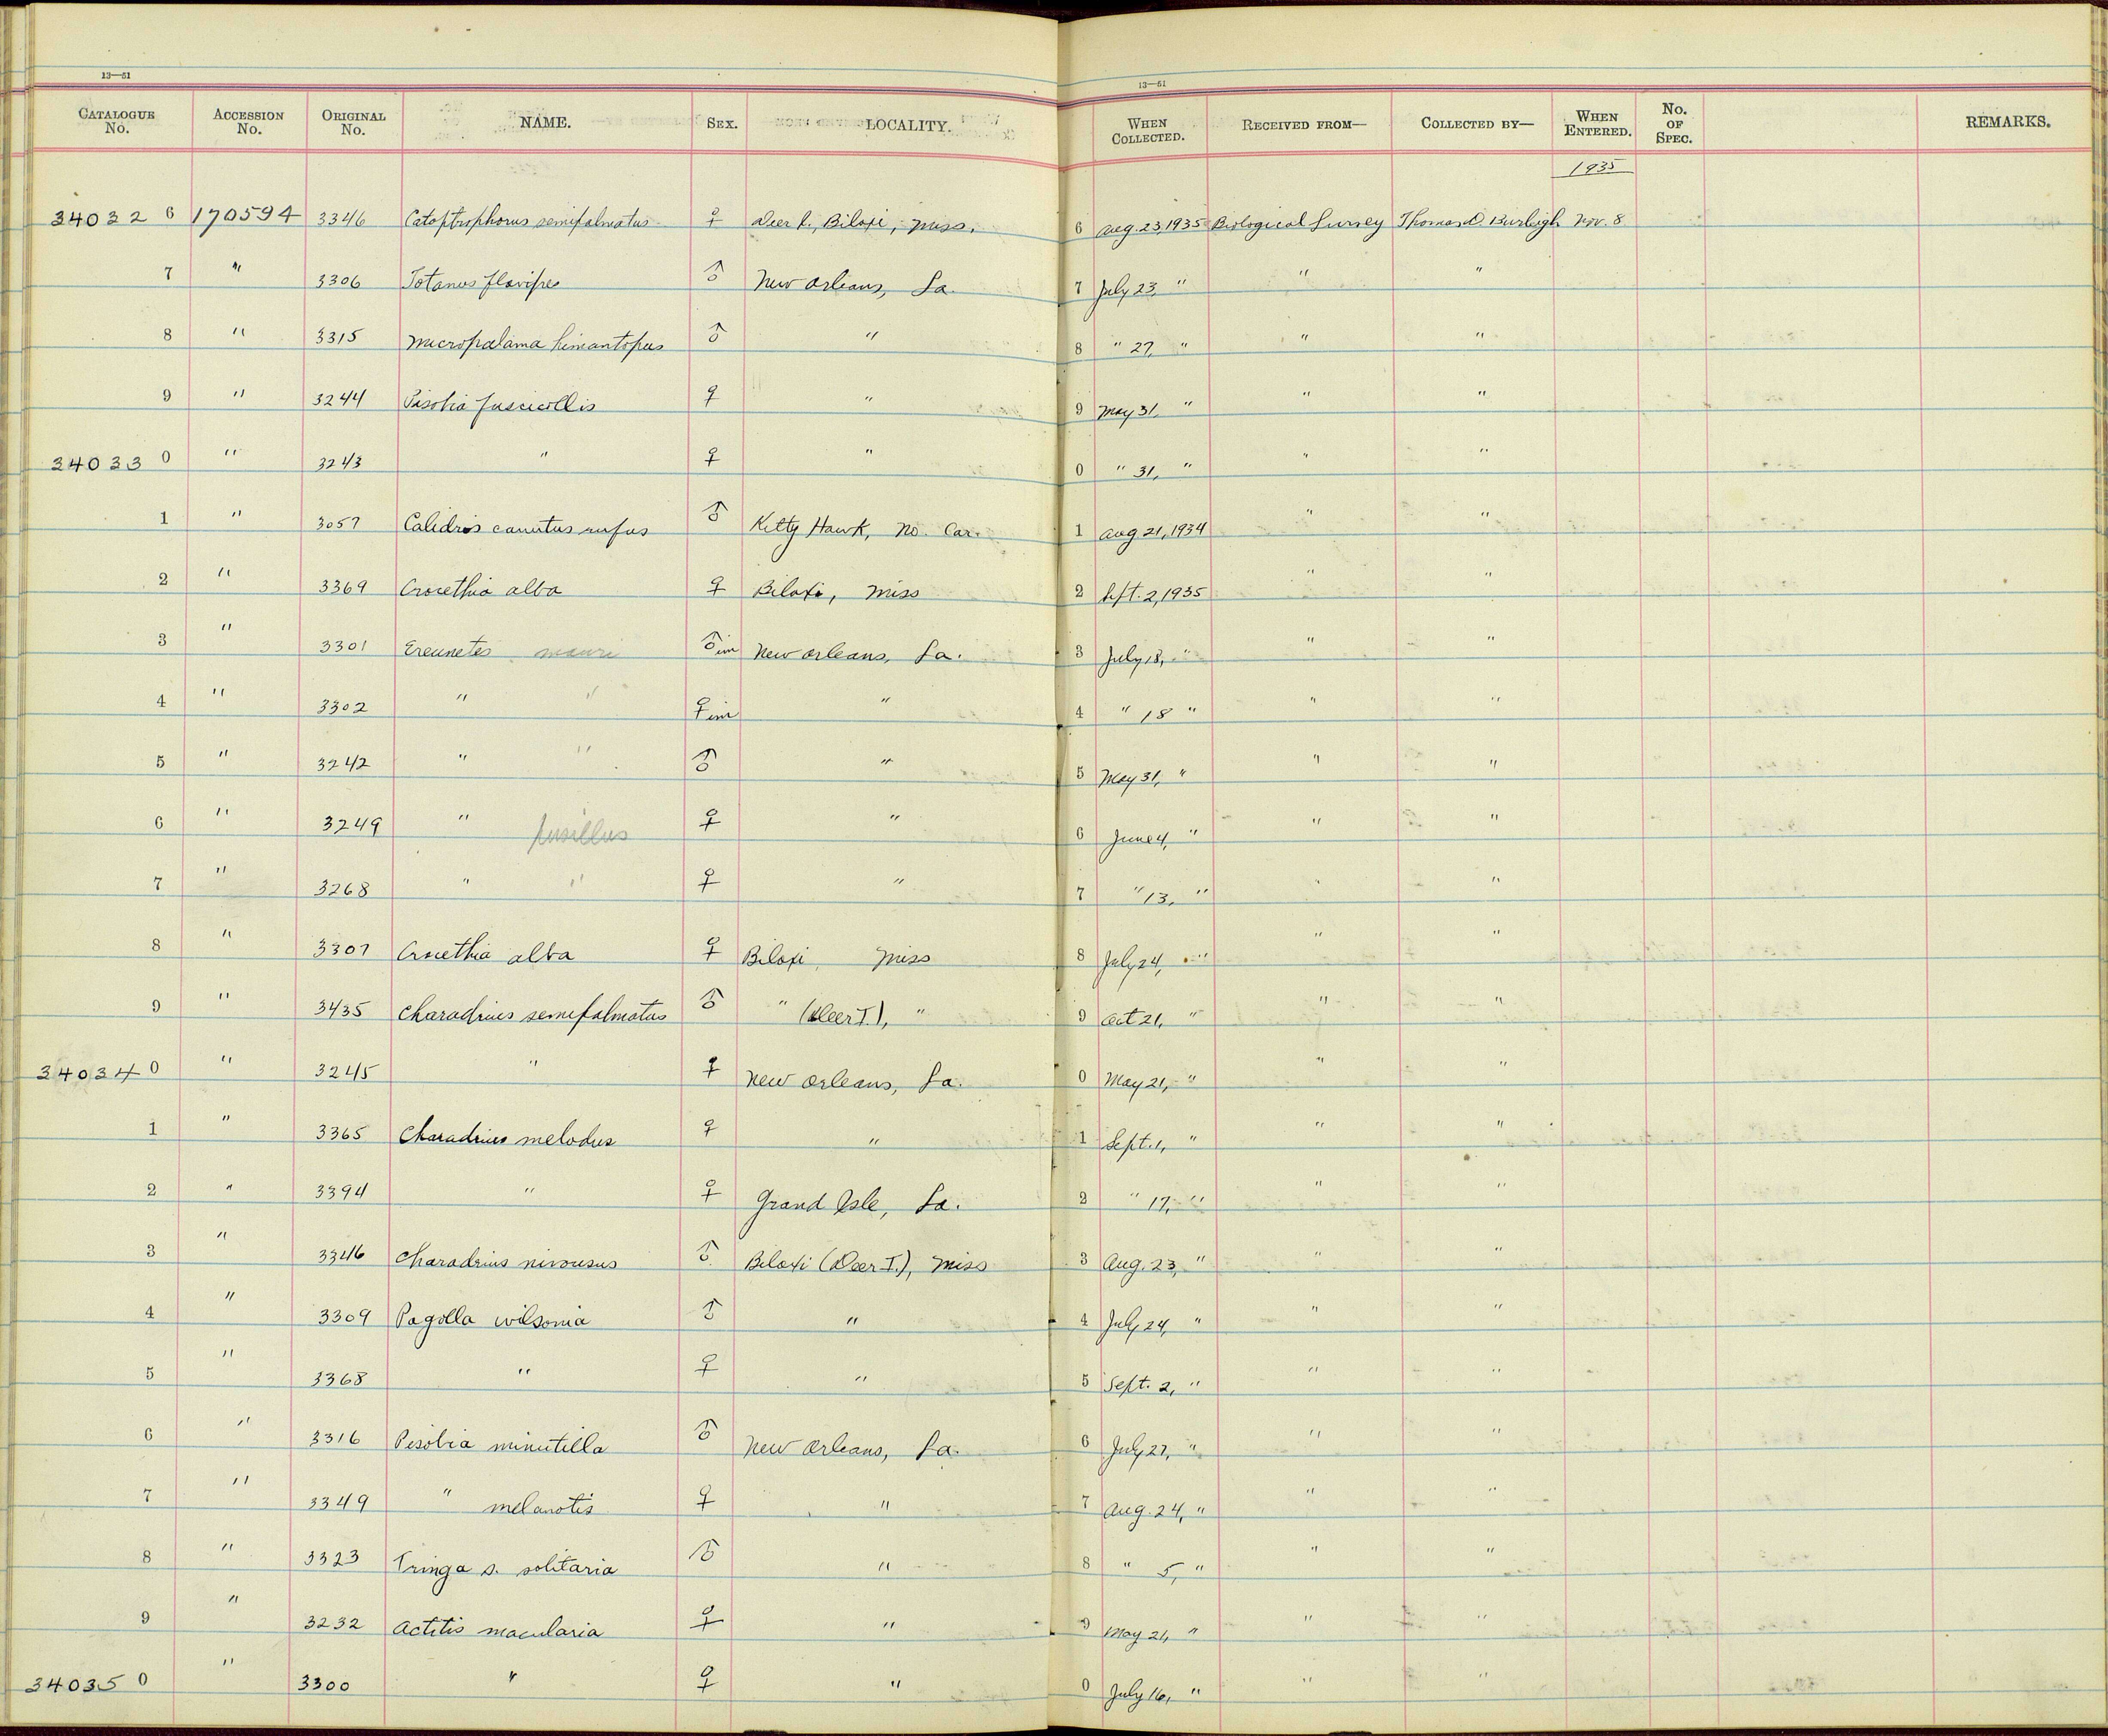 13—51
13—51
CATALOGUE No. ACCESSION No. ORIGINAL No. NAME. SEX. LOCALITY. WHEN COLLECTED. RECEIVED FROM— COLLECTED BY— WHEN ENTERED. No. OF SPEC. REMARKS.
1935
34032 6 170594 3346 Catoptrophorus semipalmatus ♀ Deer I., Biloxi, Miss. 6 Aug. 23, 1935 Biological Survey Thomas D. Burleigh Nov. 8
7 " 3306 Totanus flavipes ♂ New Orleans, La. 7 July 23, " " "
8 " 3315 Micropalama himantopus ♂ " 8 " 27, " " "
9 " 3244 Pisobia fuscicollis ♀ " 9 May 31, " " "
34033 0 " 3243 " ♀ " 0 " 31, " " "
1 " 3057 Calidris canutus rufus ♂ Kitty Hawk, No. Car. 1 Aug 21, 1934 " "
2 " 3369 Crocethia alba ♀ Biloxi, Miss 2 Sept. 2, 1935 " "
3 " 3301 Ereunetes mauri ♂ im New Orleans, La. 3 July 18, " " "
4 " 3302 " " ♀ im " 4 " 18 " " "
5 " 3242 " " ♂ " 5 May 31, " " "
6 " 3249 " pusillus ♀ " 6 June 4, " " "
7 " 3268 " " ♀ " 7 " 13, " " "
8 " 3307 Crocethia alba ♀ Biloxi, Miss 8 July 24, " " "
9 " 3435 Charadrius semipalmatus ♂ " (Deer I.), " 9 Oct 21, " " "
34034 0 " 3245 " ♀ New Orleans, La. 0 May 21, " " "
1 " 3365 Charadrius melodus ♀ " 1 Sept. 1, " " "
2 " 3394 " ♀ Grand Isle, La. 2 " 17, " " "
3 " 3346 Charadrius nivosus ♂ Biloxi (Deer I.), Miss 3 Aug. 23, " " "
4 " 3309 Pagolla wilsonia ♂ " 4 July 24, " " "
5 " 3368 " ♀ " 5 Sept. 2, " " "
6 " 3316 Pisobia minutilla ♂ New Orleans, La. 6 July 27, " " "
7 " 3349 " melanotis ♀ " 7 Aug. 24, " " "
8 " 3323 Tringa s. solitaria ♂ " 8 " 5, " " "
9 " 3232 Actitis macularia ♀ " 9 May 21, " " "
34035 0 " 3300 " ♀ " 0 July 16, " " "